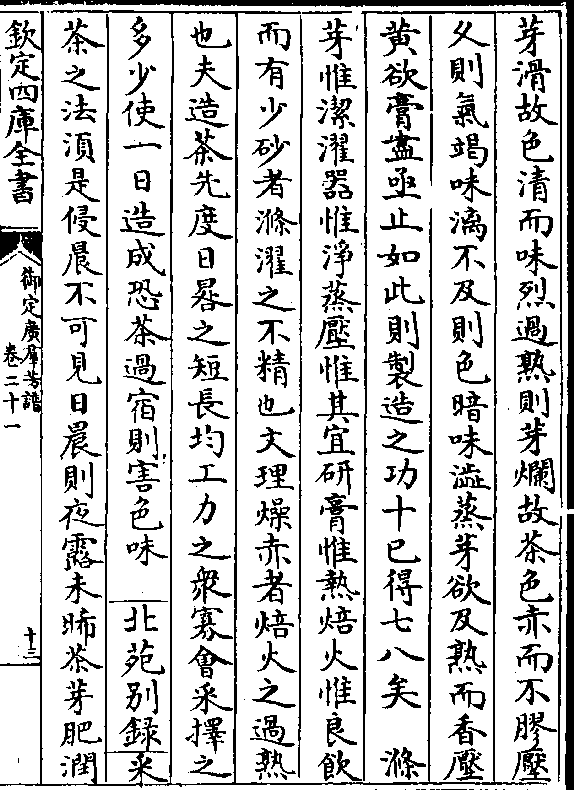 芽滑故色清而味烈過熟則芽爛故茶色赤而不膠壓
久則氣竭味漓不及則色暗味澁蒸芽欲及熟而香壓
黄欲膏盡亟止如此則製造之功十已得七八矣　滌
芽惟潔濯器惟淨蒸壓惟其宜研膏惟熱焙火惟良飲
而有少砂者滌濯之不精也文理燥赤者焙火之過熟
也夫造茶先度日晷之短長均工力之衆寡會采擇之
多少使一日造成恐茶過宿則害色味　北苑别録采
茶之法須是侵晨不可見日晨則夜露未晞茶芽肥潤
欽定四庫全書
御定廣羣芳譜
卷二十一
十三